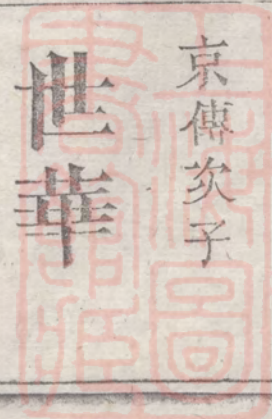 京傳次子
世華